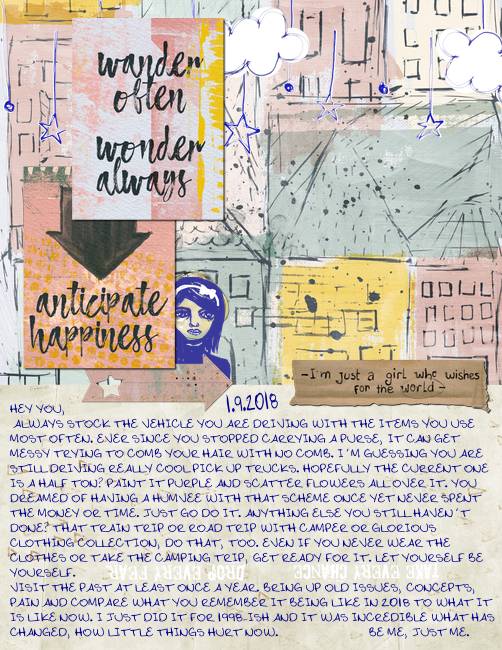 wander
often
wonder
always
anticipate
happiness
-I'm just a girl who wishes
for the world-
1.9.2018
HEY YOU,
ALWAYS STOCK THE VEHICLE YOU ARE DRIVING WITH THE ITEMS YOU USE
MOST OFTEN. EVER SINCE YOU STOPPED CARRYING A PURSE, IT CAN GET
MESSY TRYING TO COMB YOUR HAIR WITH NO COMB. I'M GUESSING YOU ARE
STILL DRIVING REALLY COOL PICK UP TRUCKS. HOPEFULLY THE CURRENT ONE
IS A HALF TON? PAINT IT PURPLE AND SCATTER FLOWERS ALL OVER IT. YOU
DREAMED OF HAVING A HUMVEE WITH THAT SCHEME ONCE YET NEVER SPENT
THE MONEY OR TIME. JUST GO DO IT. ANYTHING ELSE YOU STILL HAVEN'T
DONE? THAT TRAIN TRIP OR ROAD TRIP WITH CAMPER OR GLORIOUS
CLOTHING COLLECTION, DO THAT, TOO. EVEN IF YOU NEVER WEAR THE
CLOTHES OR TAKE THE CAMPING TRIP, GET READY FOR IT. LET YOURSELF BE
YOURSELF.
DROP EVERY FEAR TAKE EVERY CHANCE
VISIT THE PAST AT LEAST ONCE A YEAR. BRING UP OLD ISSUES, CONCEPTS,
PAIN AND COMPARE WHAT YOU REMEMBER IT BEING LIKE IN 2018 TO WHAT IT
IS LIKE NOW. I JUST DID IT FOR 1998-ISH AND IT WAS INCREDIBLE WHAT HAS
CHANGED, HOW LITTLE THINGS HURT NOW. BE ME, JUST ME.